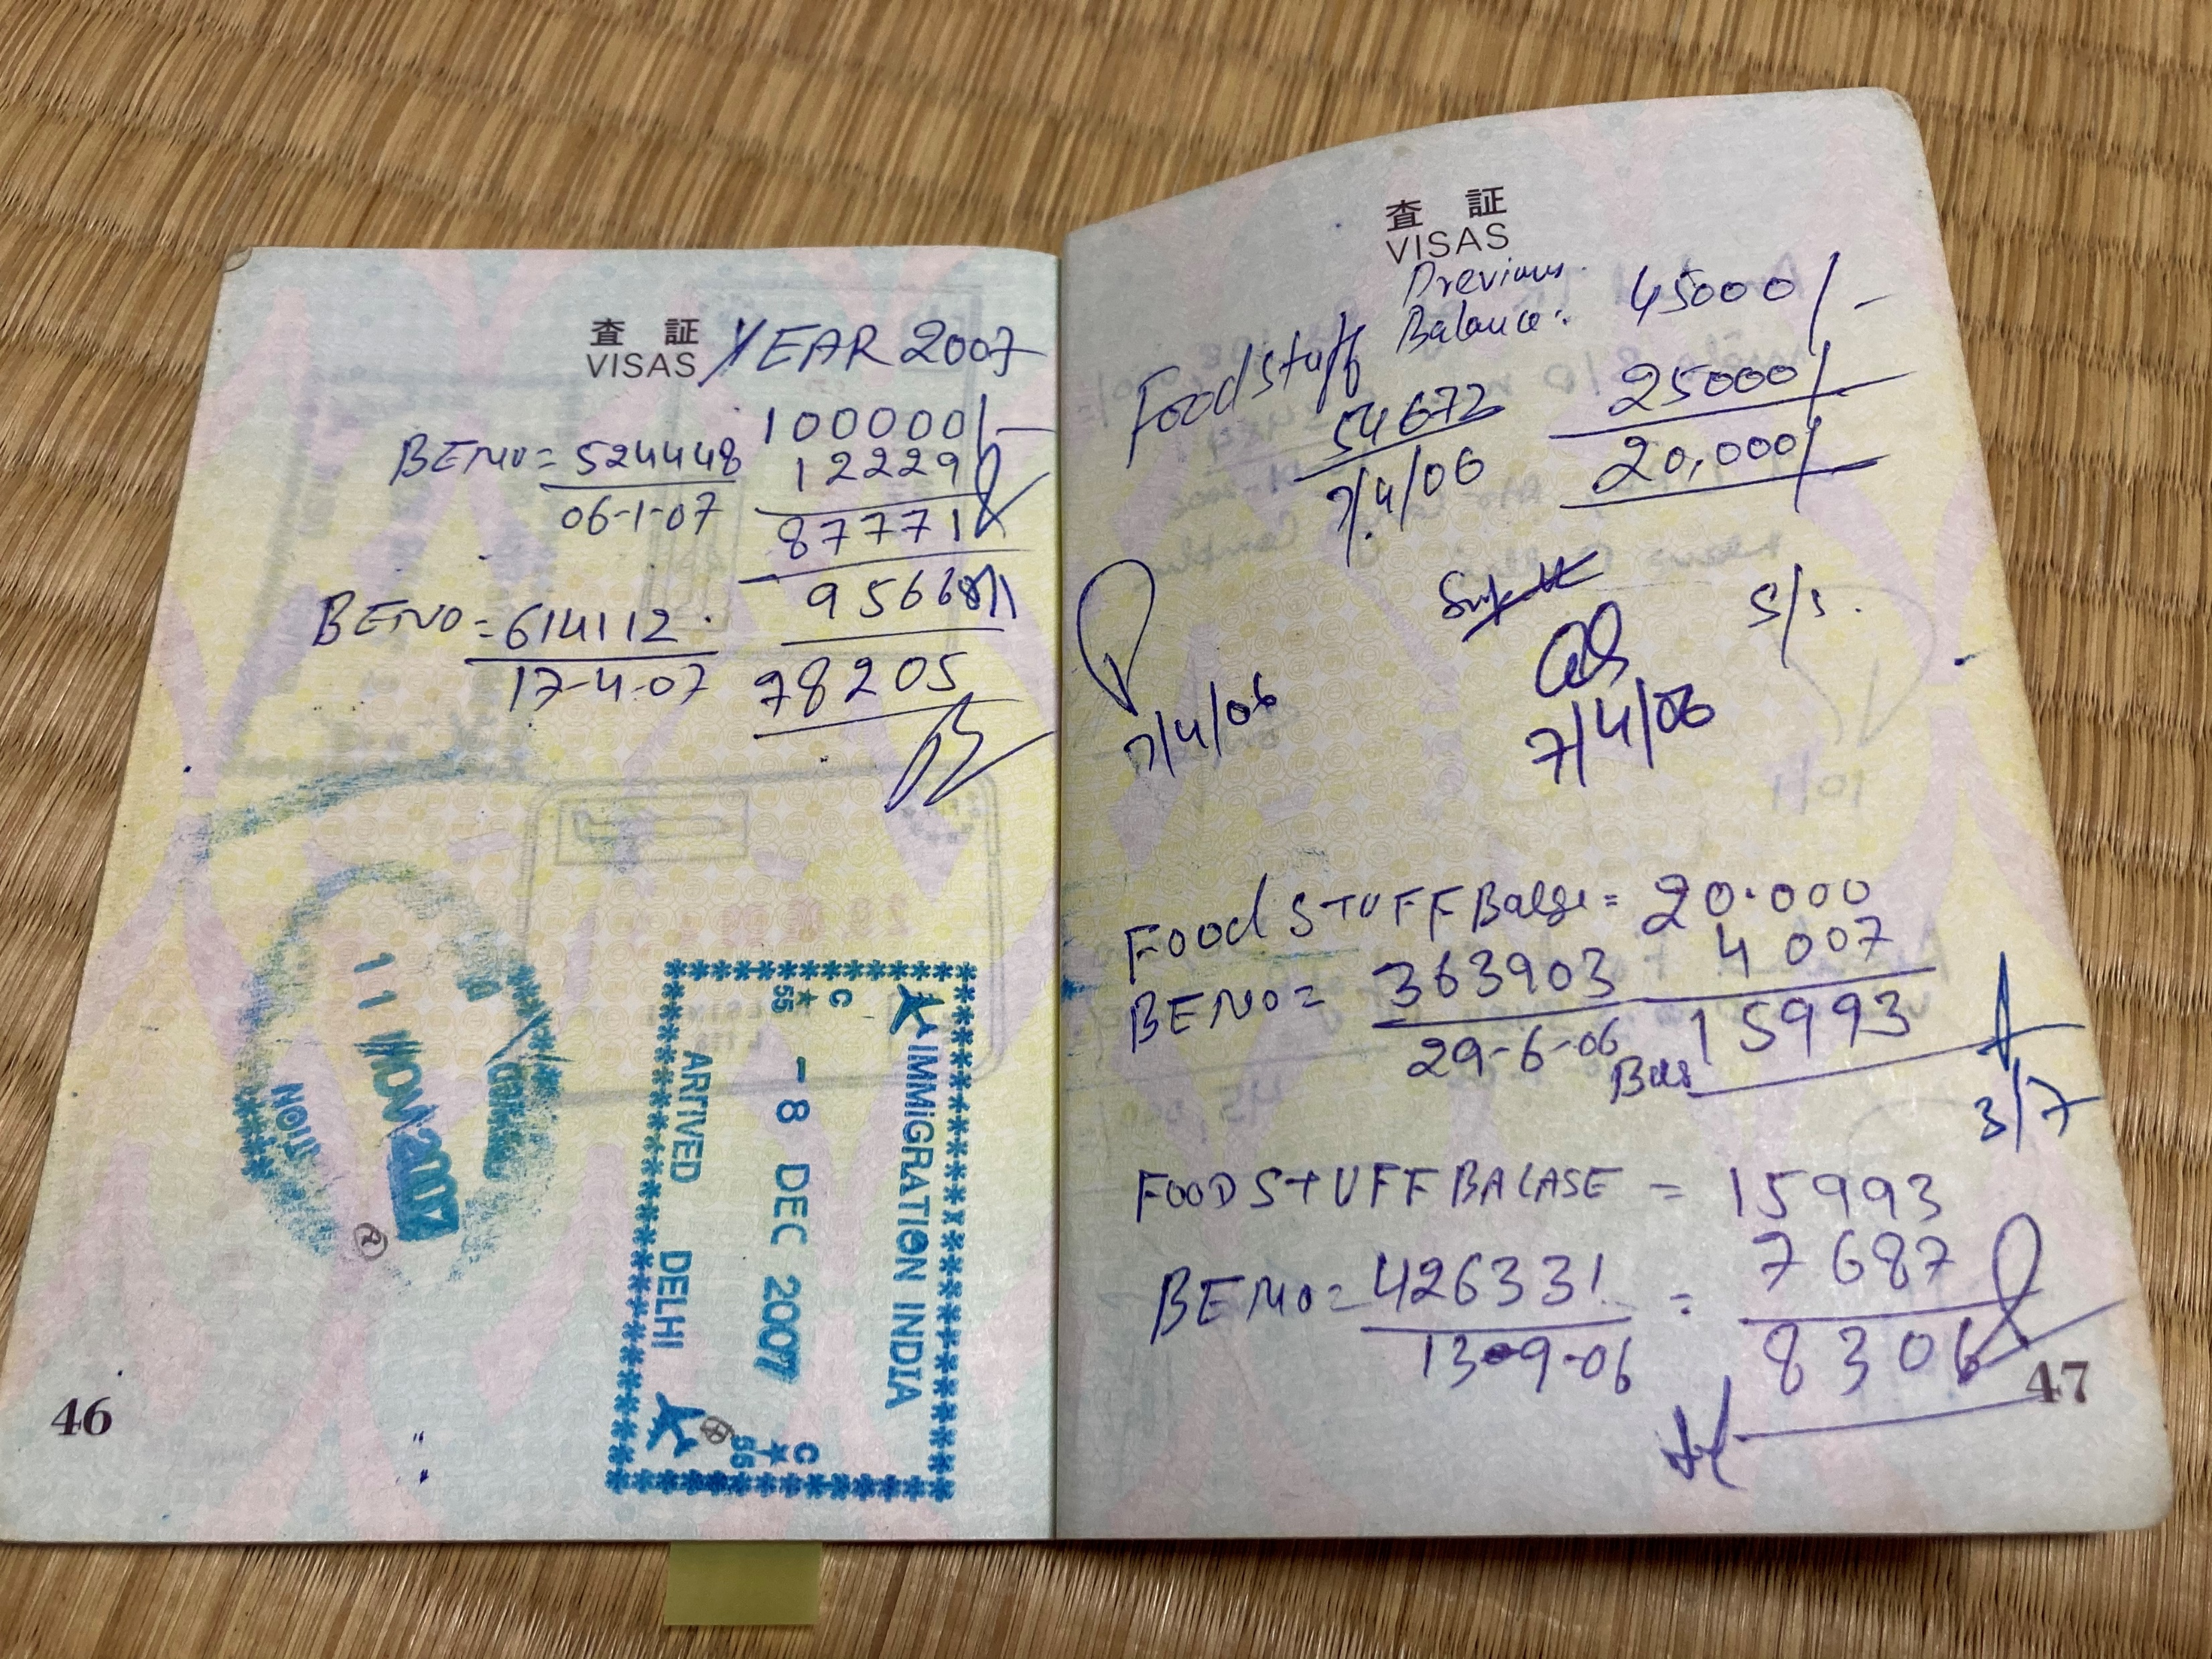 査 証
VISAS
YEAR 2007
100000/-
BENO = 524448
12229
06-1-07
87771
9566
BENO = 614112
78205
17-4-07
11 NOV 2007
TION
2
C
★
55
IMMIGRATION INDIA
- 8 DEC 2007
ARRIVED DELHI
C
★
55
46
査 証
VISAS
Previous
Balance: 45000/-
Foodstuff
54672
25000/
7/4/06
20,000/
S/S.
7/4/06
7/4/06
Food STUFF = 20.000
BENO = 363903
4007
29-6-06
15993
3/7
FOOD STUFF BALASE = 15993
BENO = 426331 = 7687
13-9-06
8306
47